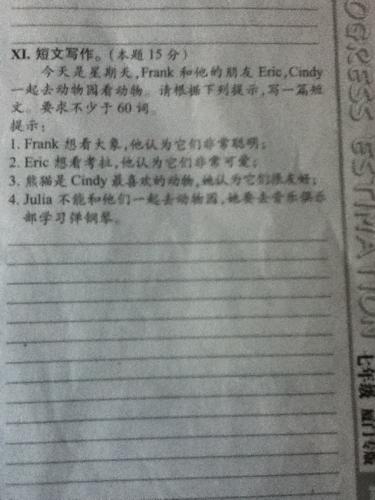 XI. 短文写作。(本题 15 分)
今天是星期天,Frank 和他的朋友 Eric,Cindy
一起去动物园看动物。请根据下列提示,写一篇短
文。要求不少于 60 词。
提示:
1. Frank 想看大象,他认为它们非常聪明;
2. Eric 想看考拉,他认为它们非常可爱;
3. 熊猫是 Cindy 最喜欢的动物,她认为它们很友好;
4. Julia 不能和他们一起去动物园,她要去音乐俱乐
部学习弹钢琴。
OGRESS ESTIMATION
七年级